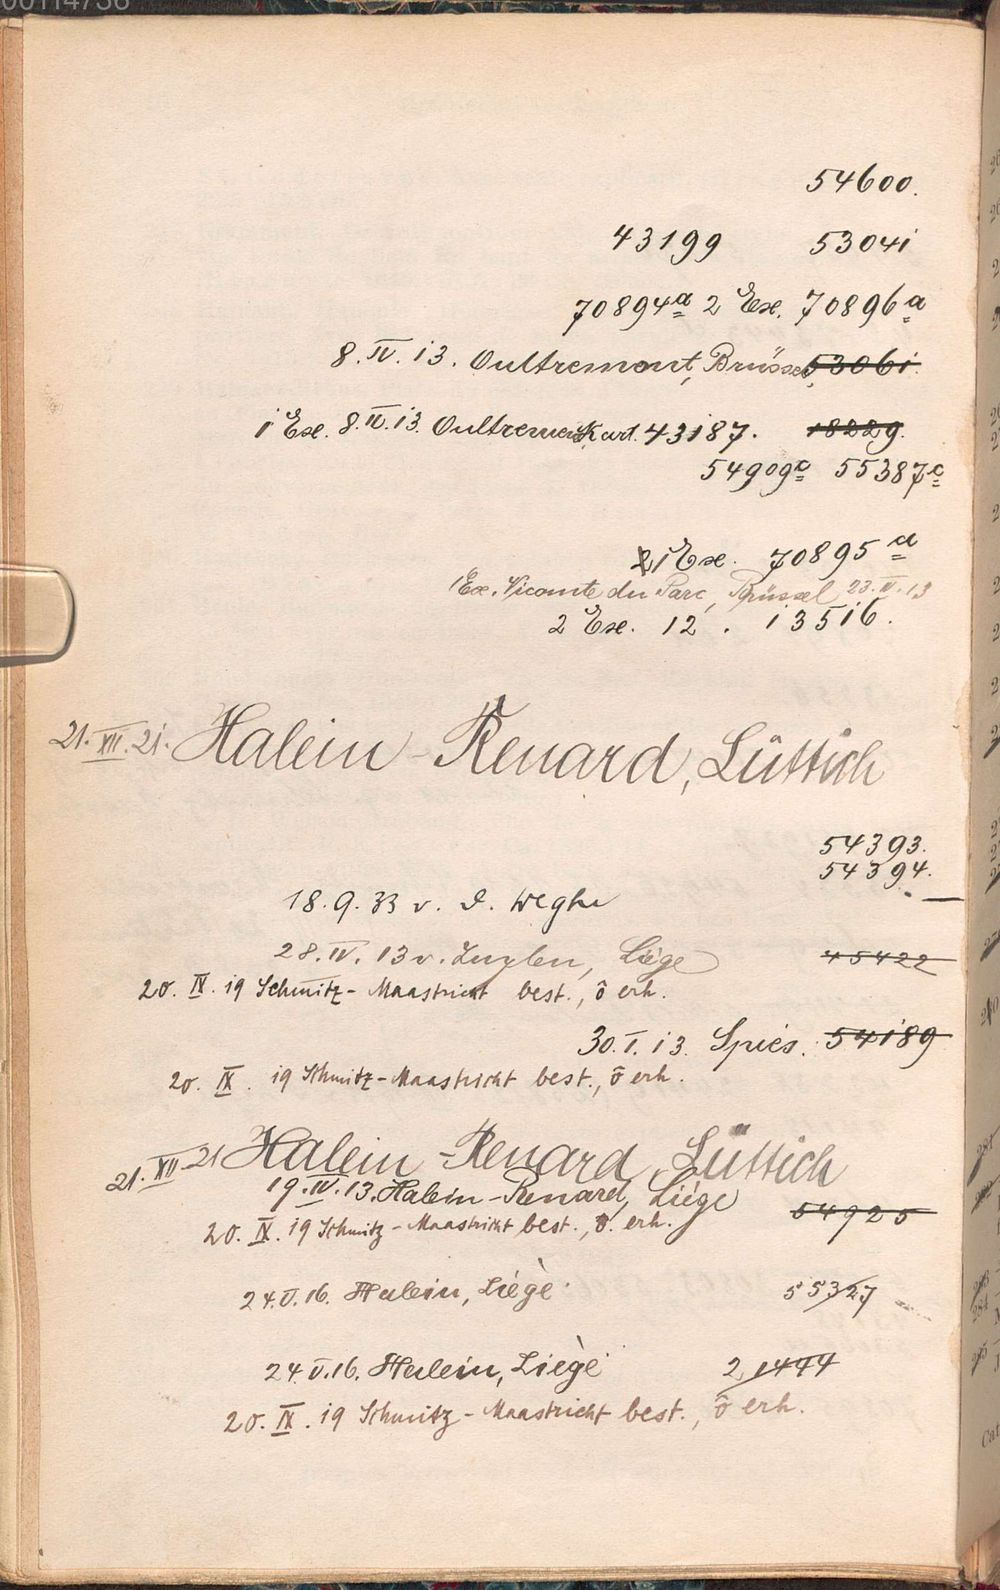 00114736
54600.
43199 53041
70894a 2 Ex. 70896a
8.IV.13. Oultremont, Brüssel, 53061.
1 Ex. 8.IV.13. Oultremont, Kart. 43187. 18229.
54909c 55387c
1 Ex. 70895a
1 Ex. Vicomte du Parc, Brüssel 23.IV.13
2 Ex. 12. 13516.
21.XII.21. Halein-Renard, Lüttich
54393.
54394.
18.9.33 v. d. Weghe
28.IV.13 v. Zuylen, Liège 45422
20.IX.19 Schmitz-Maastricht best., ô erh.
30.I.13. Spies. 54189
20.IX.19 Schmitz-Maastricht best., ô erh.
21.XII.21 Halein-Renard, Lüttich
19.IV.13. Halein-Renard, Liège 54925
20.IX.19 Schmitz-Maastricht best., ô. erh.
24.V.16. Halein, Liège 55327
24.V.16. Halein, Liège 21444
20.IX.19 Schmitz-Maastricht best., ô erh.